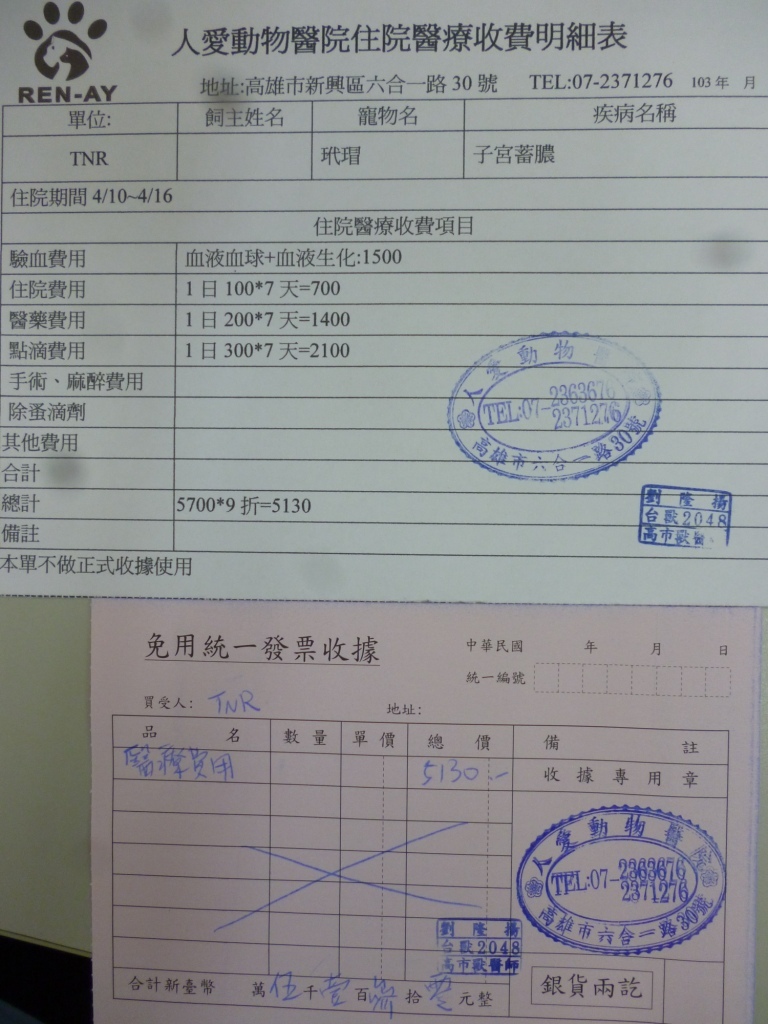 REN-AY
人愛動物醫院住院醫療收費明細表
地址:高雄市新興區六合一路 30 號 TEL:07-2371276 103 年 月
單位: 飼主姓名 寵物名 疾病名稱
TNR 玳瑁 子宮蓄膿
住院期間 4/10~4/16
住院醫療收費項目
驗血費用 血液血球+血液生化:1500
住院費用 1 日 100*7 天=700
醫藥費用 1 日 200*7 天=1400
點滴費用 1 日 300*7 天=2100
手術、麻醉費用
除蚤滴劑
其他費用
合計
總計 5700*9 折=5130
備註
本單不做正式收據使用
人愛動物醫
TEL:07-2363676
2371276
高雄市六合一路30號
劉隆揚
台獸2048
高市獸醫
免用統一發票收據
中華民國 年 月 日
統一編號
買受人: TNR 地址:
品名 數量 單價 總價 備註
醫療費用 5130.- 收據專用章
人愛動物醫院
TEL:07-2363676
2371276
高雄市六合一路30號
劉隆揚
台獸2048
高市獸醫師
合計新臺幣 萬伍千壹百拾零元整
銀貨兩訖